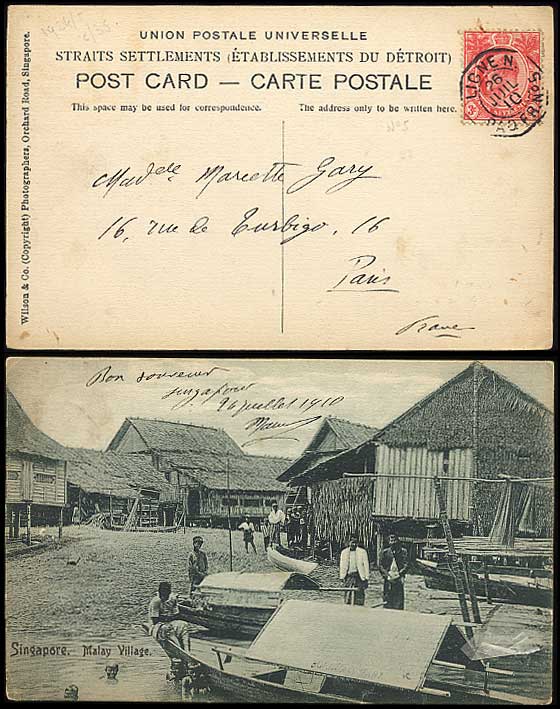 UNION POSTALE UNIVERSELLE
STRAITS SETTLEMENTS (ÉTABLISSEMENTS DU DÉTROIT)
POST CARD — CARTE POSTALE
This space may be used for correspondence.
The address only to be written here.
Wilson & Co. (Copyright) Photographers, Orchard Road, Singapore.
LIGNE N
26
JUIL
10
PAQ. FR. Nº 5
Nº5
Madelle Marcette Gary
16, rue de Turbigo, 16
Paris
France
Bon souvenir
Singapour
26 juillet 1910
Singapore. Malay Village.